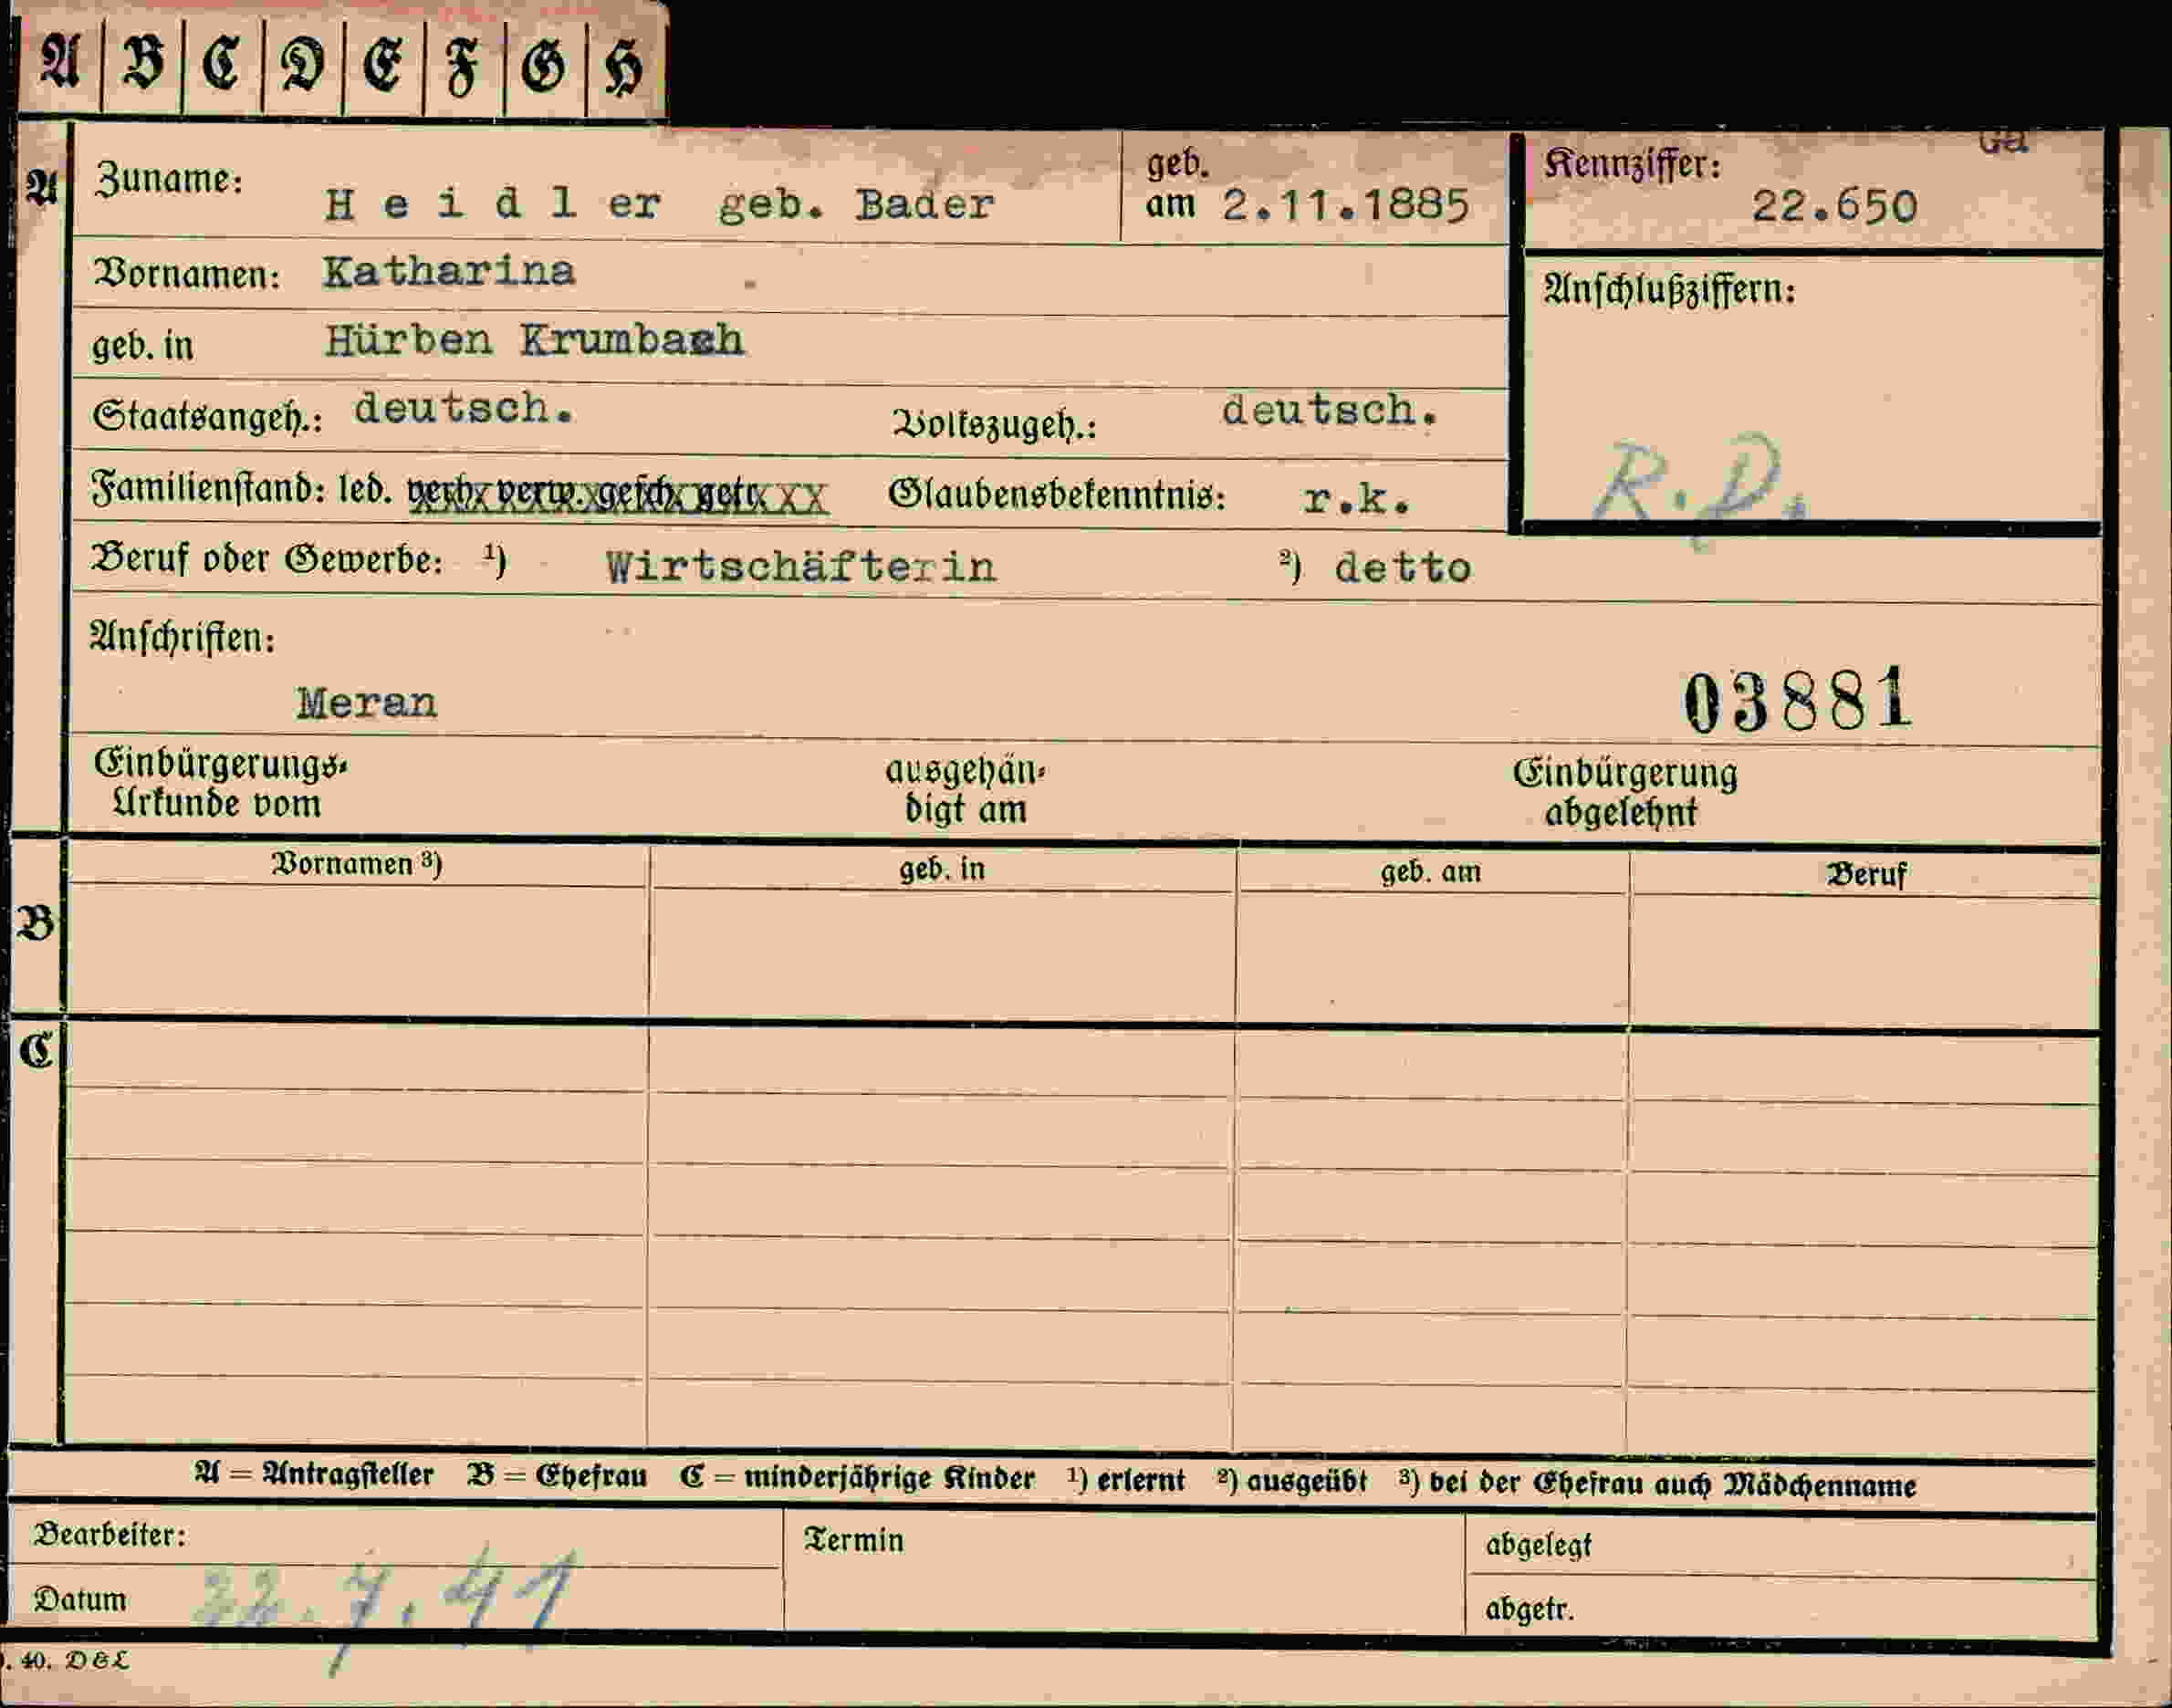 A B C D E F G H
Ga
A Zuname: Heidler geb. Bader geb. am 2.11.1885 Kennziffer: 22.650
Vornamen: Katharina
Anschlußziffern:
geb. in Hürben Krumbach
Staatsangeh.: deutsch. Volkszugeh.: deutsch.
R.D.
Familienstand: led. verh. verw. gesch. getr. xx Glaubensbekenntnis: r.k.
Beruf oder Gewerbe: ¹) Wirtschäfterin ²) detto
Anschriften:
Meran 03881
Einbürgerungs- ausgehän- Einbürgerung
Urkunde vom digt am abgelehnt
Vornamen ³) geb. in geb. am Beruf
B
C
A = Antragsteller B = Ehefrau C = minderjährige Kinder ¹) erlernt ²) ausgeübt ³) bei der Ehefrau auch Mädchenname
Bearbeiter: Termin abgelegt
Datum 22.7.41 abgetr.
. 40. D&L